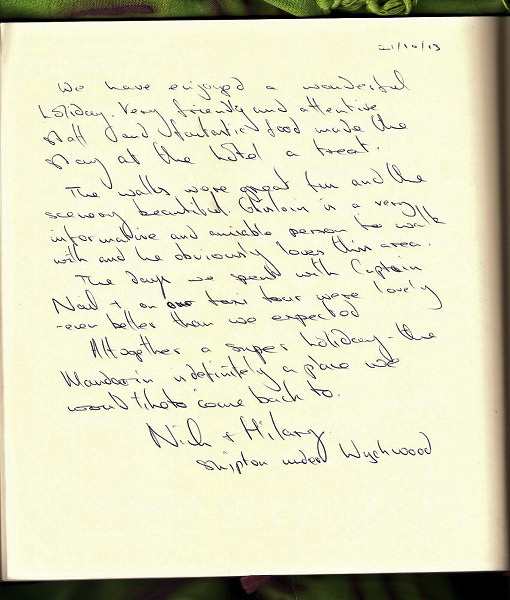 21/10/13
We have enjoyed a wonderful
holiday. Very friendly and attentive
staff and fantastic food made the
stay at the hotel a treat.
The walks were great fun and the
scenery beautiful. Ghislain is a very
informative and amiable person to walk
with and he obviously loves this area.
The days we spent with Captain
Nail + on our taxi tour were lovely
- even better than we expected
Altogether a super holiday - the
Mandarin is definitely a place we
would like to come back to.
Nick + Hilary
Shipton under Wychwood